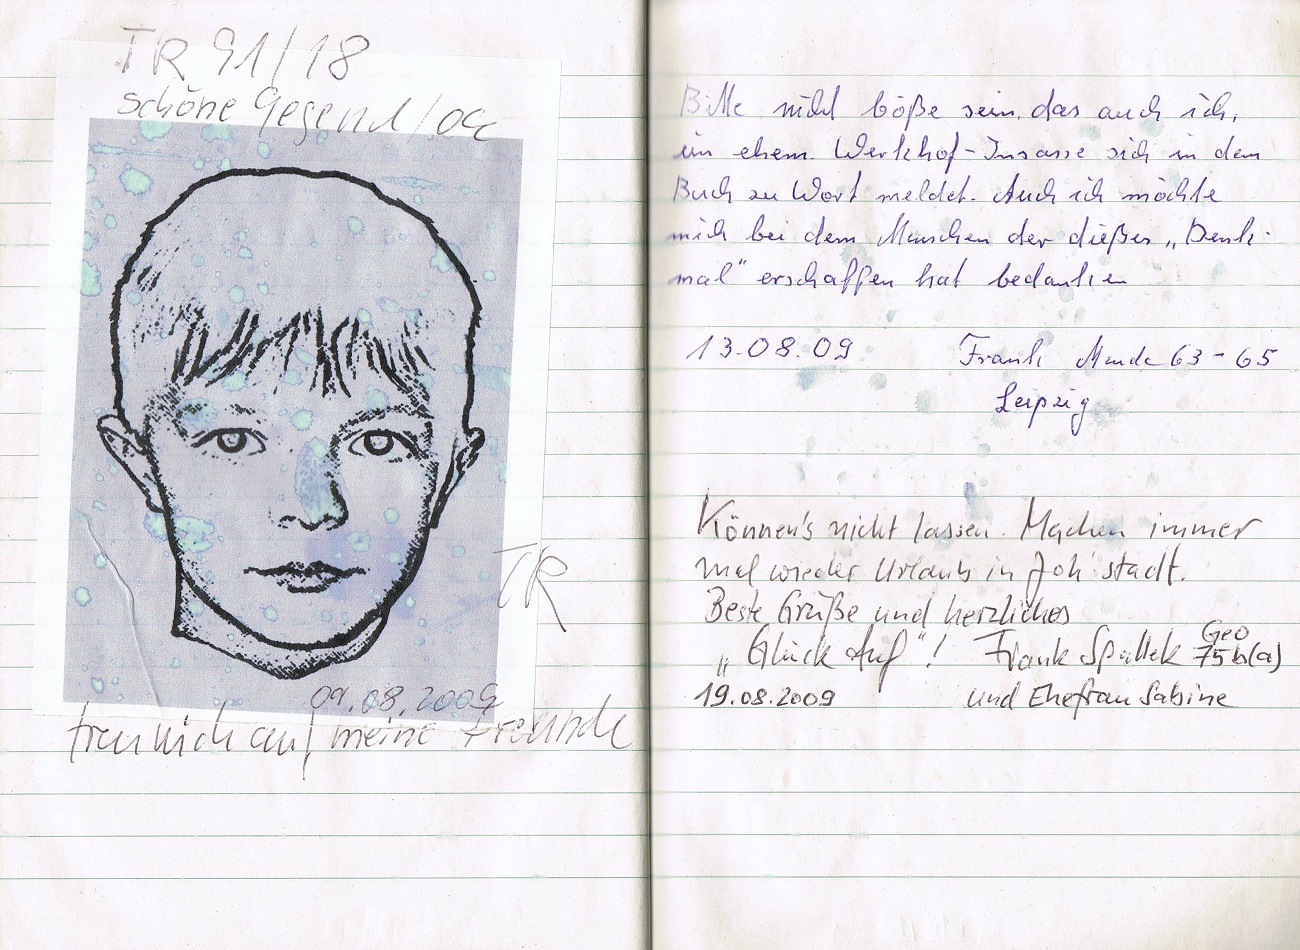 TR 91/18
schöne Gegend/
TR
09.08.2009
freu mich auf meine Freunde
Bitte nicht böße sein, das auch ich,
ein ehem. Werkhof-Insasse sich in dem
Buch zu Wort meldet. Auch ich möchte
mich bei dem Menschen der dießes „Denk-
mal" erschaffen hat bedanken
13.08.09 Frank 63-65
Leipzig
Können's nicht lassen. Machen immer
mal wieder Urlaub in Joh'stadt.
Beste Grüße und herzliches
„Glück Auf"! Frank Spallek Geo 75b(a)
19.08.2009 und Ehefrau Sabine